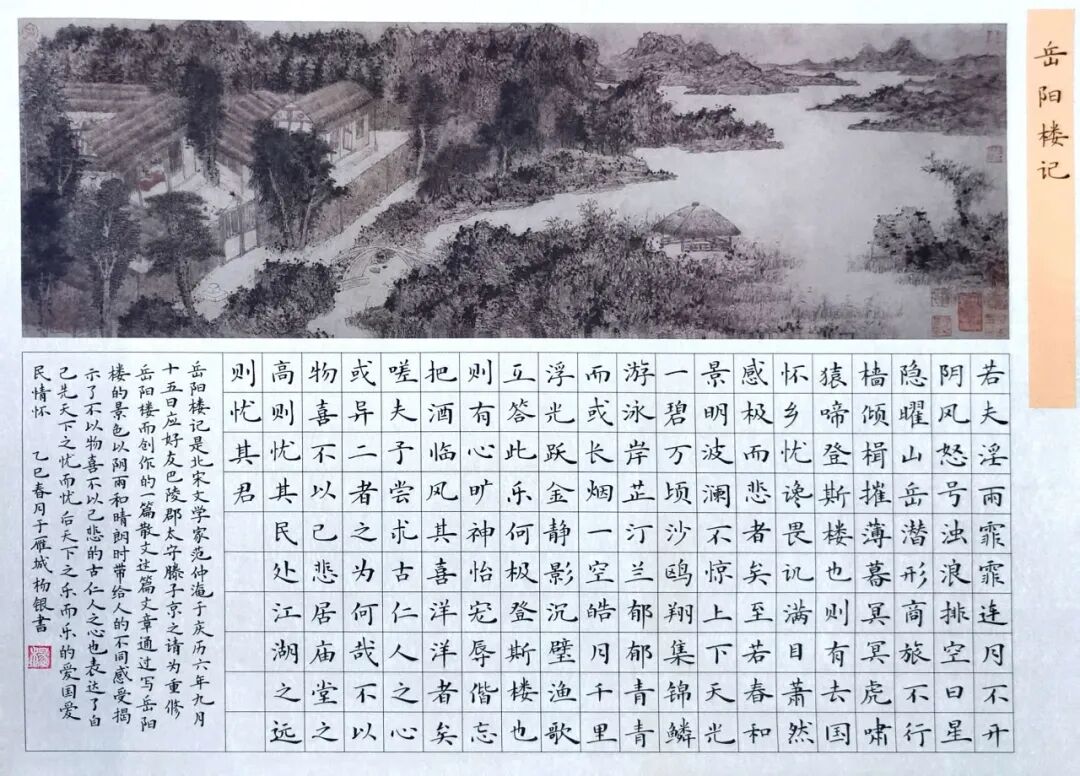 岳阳楼记
若夫淫雨霏霏连月不开
阴风怒号浊浪排空日星
隐曜山岳潜形商旅不行
樯倾楫摧薄暮冥冥虎啸
猿啼登斯楼也则有去国
怀乡忧谗畏讥满目萧然
感极而悲者矣至若春和
景明波澜不惊上下天光
一碧万顷沙鸥翔集锦鳞
游泳岸芷汀兰郁郁青青
而或长烟一空皓月千里
浮光跃金静影沉璧渔歌
互答此乐何极登斯楼也
则有心旷神怡宠辱偕忘
把酒临风其喜洋洋者矣
嗟夫予尝求古仁人之心
或异二者之为何哉不以
物喜不以己悲居庙堂之
高则忧其民处江湖之远
则忧其君
岳阳楼记是北宋文学家范仲淹于庆历六年九月
十五日应好友巴陵郡太守滕子京之请为重修
岳阳楼而创作的一篇散文这篇文章通过写岳阳
楼的景色以阴雨和晴朗时带给人的不同感受揭
示了不以物喜不以己悲的古仁人之心也表达了自
己先天下之忧而忧后天下之乐而乐的爱国爱
民情怀 乙巳春月于雁城杨银书